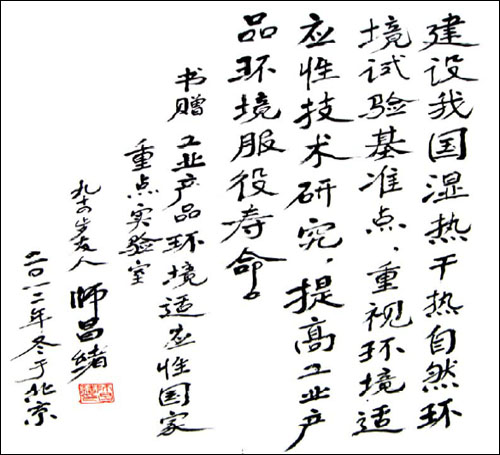 建设我国湿热干热自然环
境试验基准点，重视环境适
应性技术研究，提高工业产
品环境服役寿命。
书赠 工业产品环境适应性国家
重点实验室
九十岁友人 师昌绪
二〇一二年冬于北京